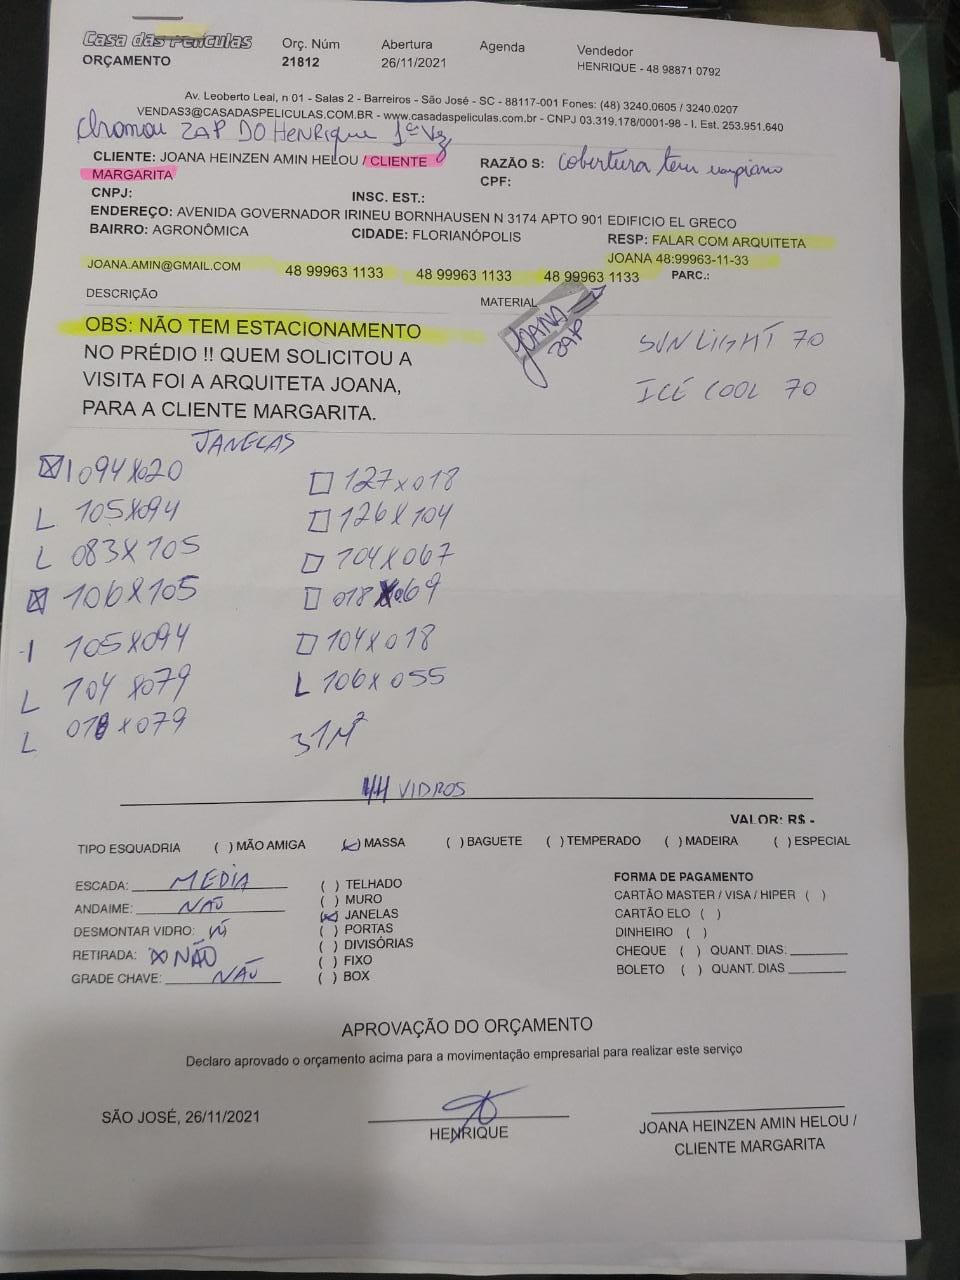 Casa das Películas
ORÇAMENTO
Orç. Núm
21812
Abertura
26/11/2021
Agenda
Vendedor
HENRIQUE - 48 98871 0792
Av. Leoberto Leal, n 01 - Salas 2 - Barreiros - São José - SC - 88117-001 Fones: (48) 3240.0605 / 3240.0207
VENDAS3@CASADASPELICULAS.COM.BR - www.casadaspeliculas.com.br - CNPJ 03.319.178/0001-98 - I. Est. 253.951.640
chamou ZAP DO HENRIQUE 1ª Vez
CLIENTE: JOANA HEINZEN AMIN HELOU / CLIENTE
MARGARITA
RAZÃO S: cobertura tem
CPF:
CNPJ:
INSC. EST.:
ENDEREÇO: AVENIDA GOVERNADOR IRINEU BORNHAUSEN N 3174 APTO 901 EDIFICIO EL GRECO
BAIRRO: AGRONÔMICA
CIDADE: FLORIANÓPOLIS
RESP: FALAR COM ARQUITETA
JOANA 48:99963-11-33
JOANA.AMIN@GMAIL.COM
48 99963 1133
48 99963 1133
48 99963 1133
PARC.:
DESCRIÇÃO
MATERIAL
JOANA
ZAP
OBS: NÃO TEM ESTACIONAMENTO
NO PRÉDIO !! QUEM SOLICITOU A
VISITA FOI A ARQUITETA JOANA,
PARA A CLIENTE MARGARITA.
SUNLIGHT 70
ICE COOL 70
JANELAS
094X020
L 105X094
L 083X105
106X105
105X094
L 104X079
L 018X079
127X018
126X104
104X067
018X069
104X018
L 106X055
31M²
44 VIDROS
VALOR: R$ -
TIPO ESQUADRIA ( ) MÃO AMIGA (x) MASSA ( ) BAGUETE ( ) TEMPERADO ( ) MADEIRA ( ) ESPECIAL
ESCADA: MEDIA
ANDAIME: NÃO
DESMONTAR VIDRO:
RETIRADA: NÃO
GRADE CHAVE: NÃO
( ) TELHADO
( ) MURO
(x) JANELAS
( ) PORTAS
( ) DIVISÓRIAS
( ) FIXO
( ) BOX
FORMA DE PAGAMENTO
CARTÃO MASTER / VISA / HIPER ( )
CARTÃO ELO ( )
DINHEIRO ( )
CHEQUE ( ) QUANT. DIAS:
BOLETO ( ) QUANT. DIAS
APROVAÇÃO DO ORÇAMENTO
Declaro aprovado o orçamento acima para a movimentação empresarial para realizar este serviço
SÃO JOSÉ, 26/11/2021
HENRIQUE
JOANA HEINZEN AMIN HELOU /
CLIENTE MARGARITA